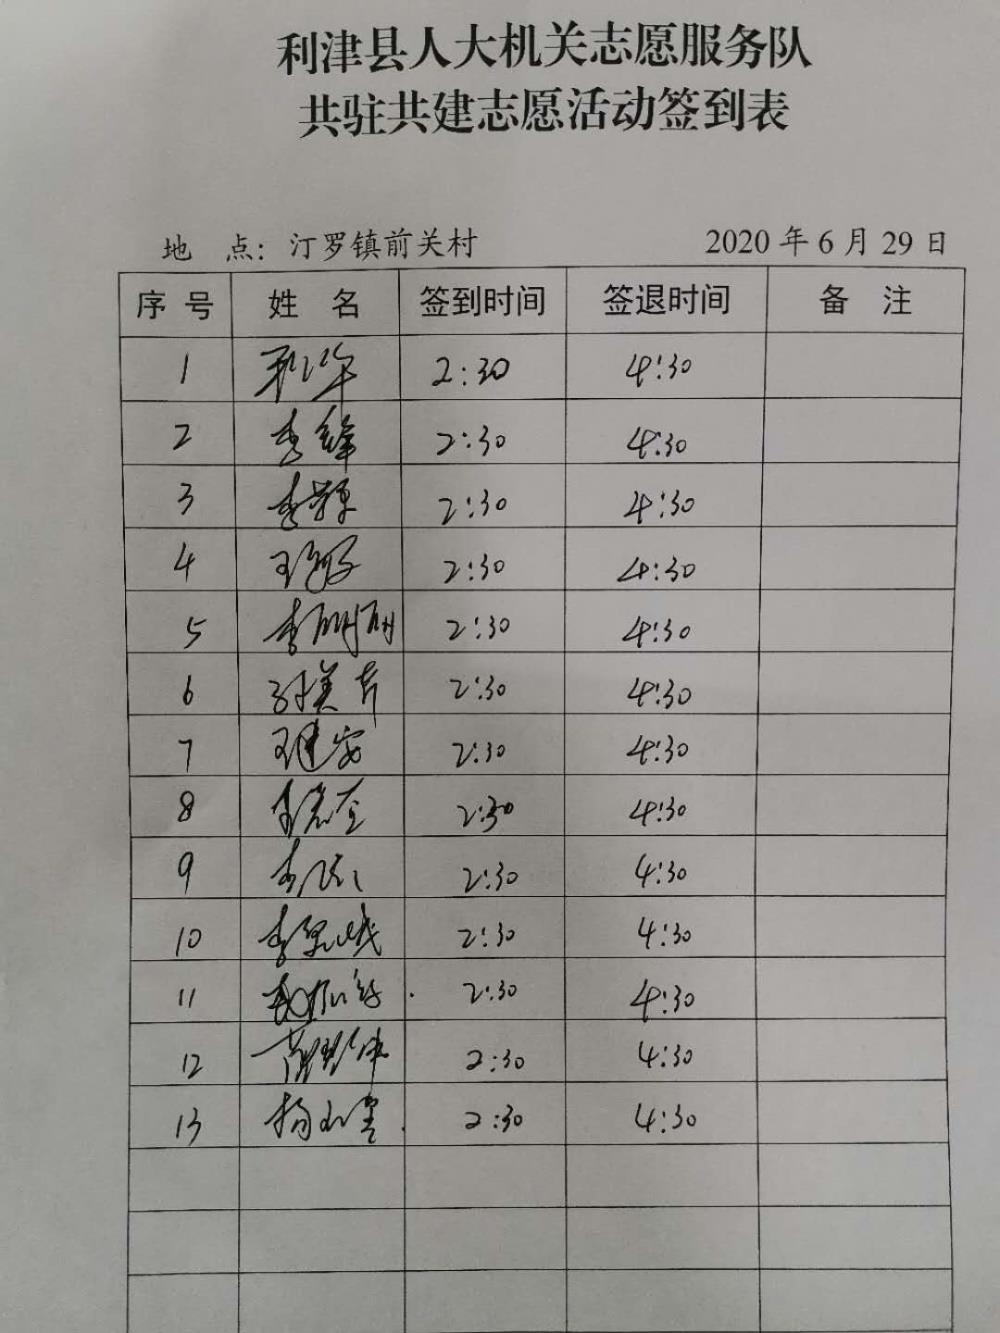 利津县人大机关志愿服务队
共驻共建志愿活动签到表
地 点：汀罗镇前关村 2020 年 6 月 29 日
序号 姓 名 签到时间 签退时间 备 注
1 2:30 4:30
2 李锋 2:30 4:30
3 李 2:30 4:30
4 王 2:30 4:30
5 李明明 2:30 4:30
6 孙美芹 2:30 4:30
7 王建安 2:30 4:30
8 李 2:30 4:30
9 李 2:30 4:30
10 李 2:30 4:30
11 2:30 4:30
12 2:30 4:30
13 杨 2:30 4:30